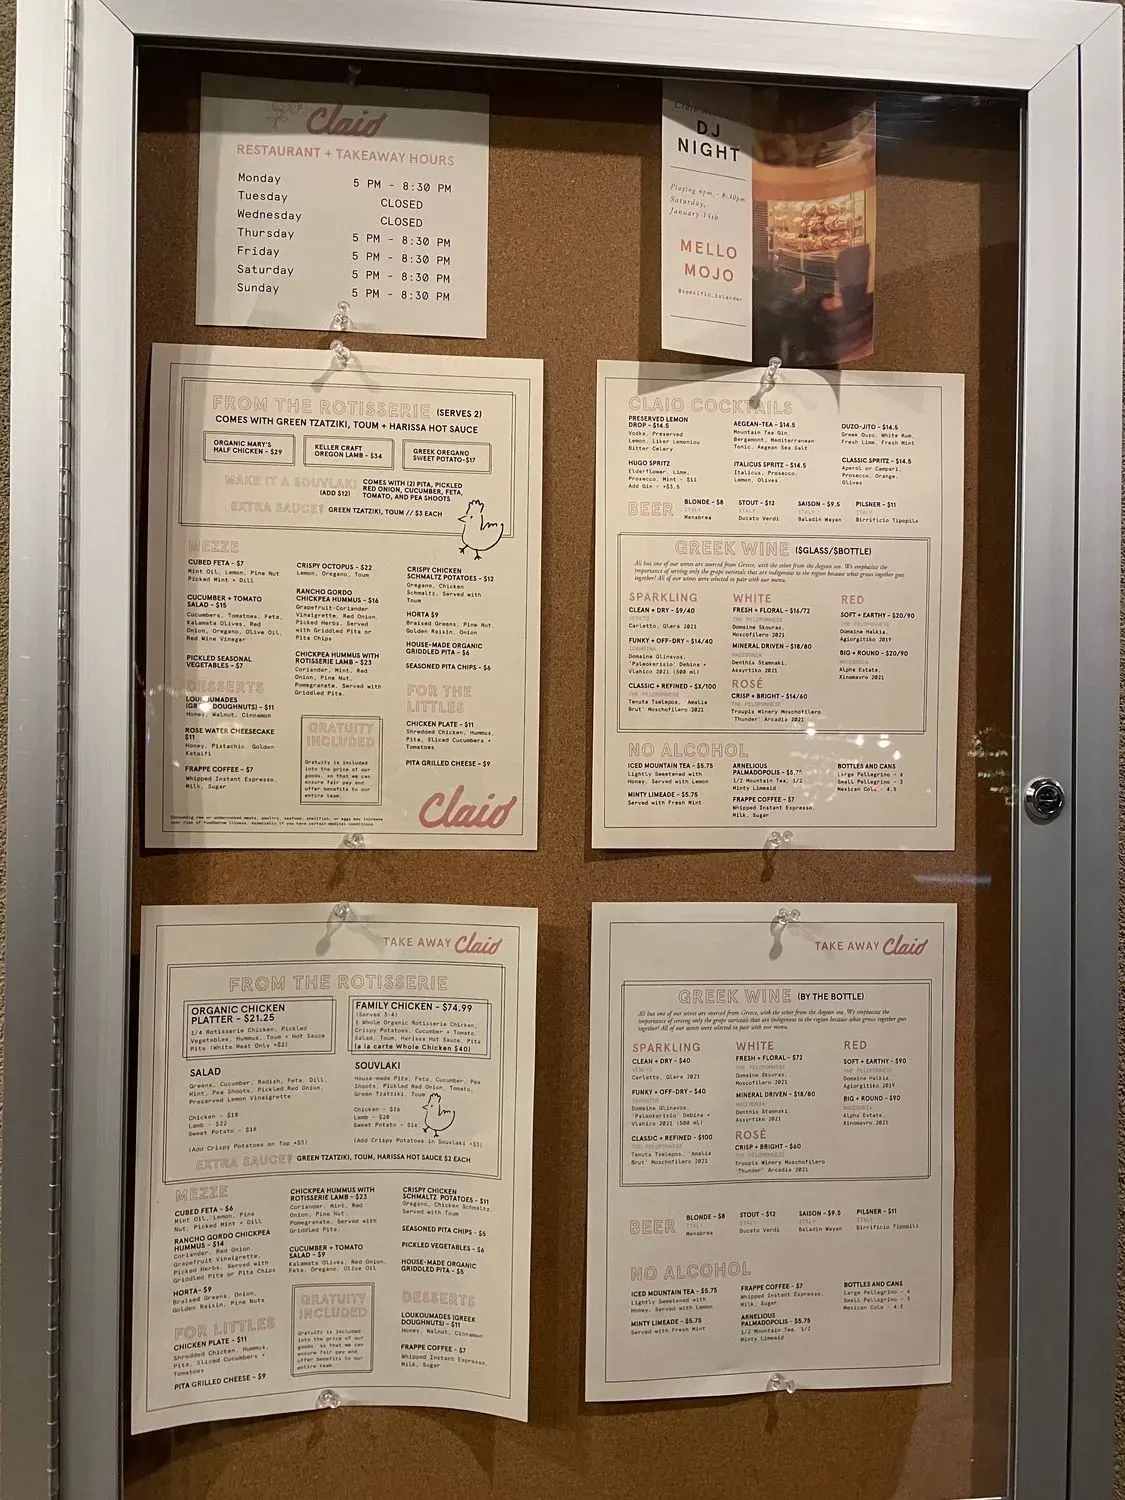 Claio
RESTAURANT + TAKEAWAY HOURS
Monday 5 PM - 8:30 PM
Tuesday CLOSED
Wednesday CLOSED
Thursday 5 PM - 8:30 PM
Friday 5 PM - 8:30 PM
Saturday 5 PM - 8:30 PM
Sunday 5 PM - 8:30 PM
DJ
NIGHT
Playing 6pm - 8:30pm
Saturday,
January 14th
MELLO
MOJO
@specific_islander
FROM THE ROTISSERIE (SERVES 2)
COMES WITH GREEN TZATZIKI, TOUM + HARISSA HOT SAUCE
ORGANIC MARY'S
HALF CHICKEN - $29
KELLER CRAFT
OREGON LAMB - $34
GREEK OREGANO
SWEET POTATO-$17
MAKE IT A SOUVLAKI
(ADD $12)
COMES WITH (2) PITA, PICKLED
RED ONION, CUCUMBER, FETA,
TOMATO, AND PEA SHOOTS
EXTRA SAUCE? GREEN TZATZIKI, TOUM // $3 EACH
MEZZE
CUBED FETA - $7
Mint Oil, Lemon, Pine Nut
Picked Mint + Dill
CUCUMBER + TOMATO
SALAD - $15
Cucumbers, Tomatoes, Feta,
Kalamata Olives, Red
Onion, Oregano, Olive Oil,
Red Wine Vinegar
PICKLED SEASONAL
VEGETABLES - $7
CRISPY OCTOPUS - $22
Lemon, Oregano, Toum
RANCHO GORDO
CHICKPEA HUMMUS - $16
Grapefruit-Coriander
Vinaigrette, Red Onion,
Picked Herbs. Served
with Griddled Pita or
Pita Chips
CHICKPEA HUMMUS WITH
ROTISSERIE LAMB - $23
Coriander, Mint, Red
Onion, Pine Nut,
Pomegranate, Served with
Griddled Pita.
CRISPY CHICKEN
SCHMALTZ POTATOES - $12
Oregano, Chicken
Schmaltz, Served with
Toum
HORTA $9
Braised Greens, Pine Nut,
Golden Raisin, Onion
HOUSE-MADE ORGANIC
GRIDDLED PITA - $6
SEASONED PITA CHIPS - $6
DESSERTS
LOUKOUMADES
DOUGHNUTS) - $11
Honey, Walnut, Cinnamon
ROSE WATER CHEESECAKE
$11
Honey, Pistachio, Golden
Kataifi
FRAPPE COFFEE - $7
Whipped Instant Espresso,
Milk, Sugar
GRATUITY
INCLUDED
Gratuity is included
into the price of our
goods, so that we can
ensure fair pay and
offer benefits to our
entire team.
FOR THE
LITTLES
CHICKEN PLATE - $11
Shredded Chicken, Hummus,
Pita, Sliced Cucumbers +
Tomatoes
PITA GRILLED CHEESE - $9
Consuming raw or undercooked meats, poultry, seafood, shellfish, or eggs may increase
your risk of foodborne illness, especially if you have certain medical conditions.
Claio
CLAIO COCKTAILS
PRESERVED LEMON
DROP - $14.5
Vodka, Preserved
Lemon, Liker Lemoniou
Bitter Celery
AEGEAN-TEA - $14.5
Mountain Tea Gin,
Bergamont, Mediterranean
Tonic, Aegean Sea Salt
OUZO-JITO - $14.5
Greek Ouzo, White Rum,
Fresh Lime, Fresh Mint
HUGO SPRITZ
Elderflower, Lime,
Prosecco, Mint - $11
Add Gin - +$3.5
ITALICUS SPRITZ - $14.5
Italicus, Prosecco,
Lemon, Olives
CLASSIC SPRITZ - $14.5
Aperol or Campari,
Prosecco, Orange,
Olives
BEER
BLONDE - $8
ITALY
Menabrea
STOUT - $12
ITALY
Ducato Verdi
SAISON - $9.5
ITALY
Baladin Wayan
PILSNER - $11
ITALY
Birrificio Tipopils
GREEK WINE ($GLASS/$BOTTLE)
All but one of our wines are sourced from Greece, with the other from the Aegean sea. We emphasize the
importance of serving only the grape varietals that are indigenous to the region because what grows together goes
together! All of our wines were selected to pair with our menu.
SPARKLING
CLEAN + DRY - $9/40
VENETO
Carletto, Glera 2021
FUNKY + OFF-DRY - $14/40
IOANNINA
Domaine Glinavos,
'Paleokerisio' Debina +
Vlahico 2021 (500 ml)
CLASSIC + REFINED - $X/100
THE PELOPONNESE
Tenuta Tselepos, 'Amalia
Brut' Moschofilero 2021
WHITE
FRESH + FLORAL - $16/72
THE PELOPONNESE
Domaine Skouras,
Moscofilero 2021
MINERAL DRIVEN - $18/80
MACEDONIA
Denthis Stamnaki,
Assyrtiko 2021
ROSÉ
CRISP + BRIGHT - $14/60
THE PELOPONNESE
Troupis Winery Moschofilero
'Thunder' Arcadia 2021
RED
SOFT + EARTHY - $20/90
THE PELOPONNESE
Domaine Halkia,
Agiorgitiko 2019
BIG + ROUND - $20/90
MACEDONIA
Alpha Estate,
Xinomavro 2021
NO ALCOHOL
ICED MOUNTAIN TEA - $5.75
Lightly Sweetened with
Honey, Served with Lemon
MINTY LIMEADE - $5.75
Served with Fresh Mint
ARNELIOUS
PALMADOPOLIS - $5.75
1/2 Mountain Tea, 1/2
Minty Limeade
FRAPPE COFFEE - $7
Whipped Instant Espresso,
Milk, Sugar
BOTTLES AND CANS
Large Pellegrino - 6
Small Pellegrino - 3
Mexican Cola - 4.5
TAKE AWAY Claio
FROM THE ROTISSERIE
ORGANIC CHICKEN
PLATTER - $21.25
1/4 Rotisserie Chicken, Pickled
Vegetables, Hummus, Toum + Hot Sauce
Pita (White Meat Only +$2)
FAMILY CHICKEN - $74.99
(Serves 3-4)
1 Whole Organic Rotisserie Chicken,
Crispy Potatoes, Cucumber + Tomato
Salad, Toum, Harissa Hot Sauce, Pita
(a la carte Whole Chicken $40)
SALAD
Greens, Cucumber, Radish, Feta, Dill,
Mint, Pea Shoots, Pickled Red Onion,
Preserved Lemon Vinaigrette
Chicken - $18
Lamb - $22
Sweet Potato - $18
(Add Crispy Potatoes on Top +$3)
SOUVLAKI
House-made Pita, Feta, Cucumber, Pea
Shoots, Pickled Red Onion, Tomato,
Green Tzatziki, Toum
Chicken - $16
Lamb - $20
Sweet Potato - $16
(Add Crispy Potatoes in Souvlaki +$3)
EXTRA SAUCE? GREEN TZATZIKI, TOUM, HARISSA HOT SAUCE $2 EACH
MEZZE
CUBED FETA - $6
Mint Oil, Lemon, Pine
Nut, Picked Mint + Dill
RANCHO GORDO CHICKPEA
HUMMUS - $14
Coriander, Red Onion,
Grapefruit Vinaigrette,
Picked Herbs, Served with
Griddled Pita or Pita Chips
HORTA- $9
Braised Greens, Onion,
Golden Raisin, Pine Nuts
CHICKPEA HUMMUS WITH
ROTISSERIE LAMB - $23
Coriander, Mint, Red
Onion, Pine Nut,
Pomegranate, Served with
Griddled Pita.
CUCUMBER + TOMATO
SALAD - $9
Kalamata Olives, Red Onion,
Feta, Oregano, Olive Oil
CRISPY CHICKEN
SCHMALTZ POTATOES - $11
Oregano, Chicken Schmaltz,
Served with Toum
SEASONED PITA CHIPS - $5
PICKLED VEGETABLES - $6
HOUSE-MADE ORGANIC
GRIDDLED PITA - $5
FOR LITTLES
CHICKEN PLATE - $11
Shredded Chicken, Hummus,
Pita, Sliced Cucumbers +
Tomatoes
PITA GRILLED CHEESE - $9
GRATUITY
INCLUDED
Gratuity is included
into the price of our
goods, so that we can
ensure fair pay and
offer benefits to our
entire team.
DESSERTS
LOUKOUMADES (GREEK
DOUGHNUTS) - $11
Honey, Walnut, Cinnamon
FRAPPE COFFEE - $7
Whipped Instant Espresso,
Milk, Sugar
TAKE AWAY Claio
GREEK WINE (BY THE BOTTLE)
All but one of our wines are sourced from Greece, with the other from the Aegean sea. We emphasize the
importance of serving only the grape varietals that are indigenous to the region because what grows together goes
together! All of our wines were selected to pair with our menu.
SPARKLING
CLEAN + DRY - $40
VENETO
Carletto, Glera 2021
FUNKY + OFF-DRY - $40
IOANNINA
Domaine Glinavos,
'Paleokerisio' Debina +
Vlahico 2021 (500 ml)
CLASSIC + REFINED - $100
THE PELOPONNESE
Tenuta Tselepos, 'Amalia
Brut' Moschofilero 2021
WHITE
FRESH + FLORAL - $72
THE PELOPONNESE
Domaine Skouras,
Moscofilero 2021
MINERAL DRIVEN - $18/80
MACEDONIA
Denthis Stamnaki,
Assyrtiko 2021
ROSÉ
CRISP + BRIGHT - $60
THE PELOPONNESE
Troupis Winery Moschofilero
'Thunder' Arcadia 2021
RED
SOFT + EARTHY - $90
THE PELOPONNESE
Domaine Halkia,
Agiorgitiko 2019
BIG + ROUND - $90
MACEDONIA
Alpha Estate,
Xinomavro 2021
BEER
BLONDE - $8
ITALY
Menabrea
STOUT - $12
ITALY
Ducato Verdi
SAISON - $9.5
ITALY
Baladin Wayan
PILSNER - $11
ITALY
Birrificio Tipopils
NO ALCOHOL
ICED MOUNTAIN TEA - $5.75
Lightly Sweetened with
Honey, Served with Lemon
MINTY LIMEADE - $5.75
Served with Fresh Mint
FRAPPE COFFEE - $7
Whipped Instant Espresso,
Milk, Sugar
ARNELIOUS
PALMADOPOLIS - $5.75
1/2 Mountain Tea, 1/2
Minty Limeaid
BOTTLES AND CANS
Large Pellegrino - 6
Small Pellegrino - 3
Mexican Cola -